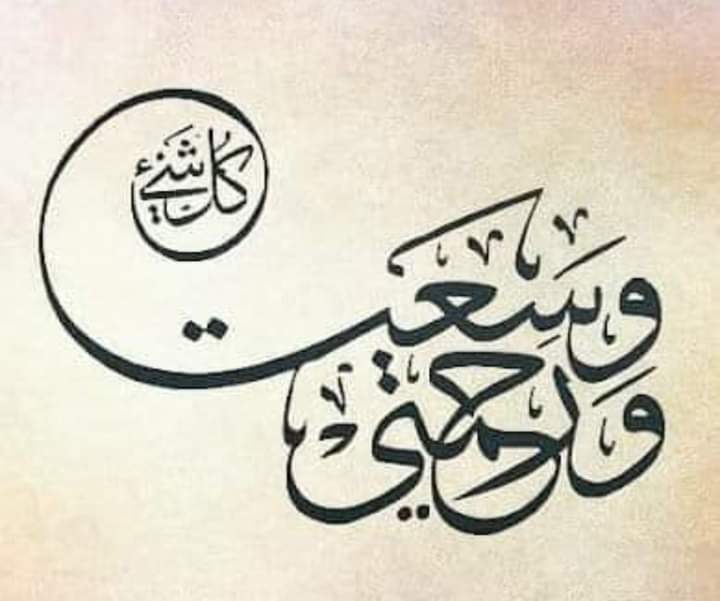 ورحمتي
وسعت
كل شيء